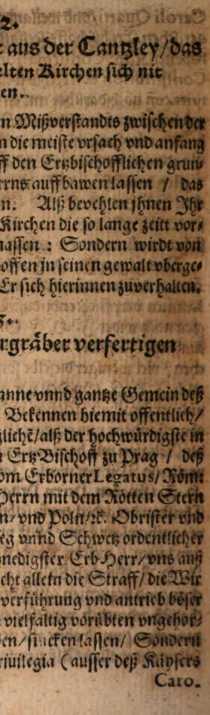 2.
aus der Cantzley/das
elten Kirchen sich nit
en.
n Mißverstandts zwischen der
n die meiste vrsach vnd anfang
ff den Ertzbischofflichen grun-
errns auffbawen lassen / das
n. Alß bevehlen jhnen Jhr
Kirchen die so lange zeitt vor-
nassen : Sondern wirdt von
offen in seinen gewalt vberge-
Er sich hierinnen zuverhalten.
rgräber verfertigen
nne vnnd gantze Gemein deß
Bekennen hiemit offentlich/
zlichē/alß der hochwürdigste in
Ertz Bischoff zu Prag / deß
om Erborner Legatus/Römi
Herrn mit dem Rotten Stern
n/vnd Poln/ꝛc. Obrister vnd
eg vnnd Schweitz ordentlicher
nedigster Erb-Herr/vns auß
cht allein die Straff/die Wir
verführung vnd antrieb böser
vielfaltig vorübten vngehor-
en/sincken lassen/ Sondern
rivilegia (ausser deß Käysers
Caro.